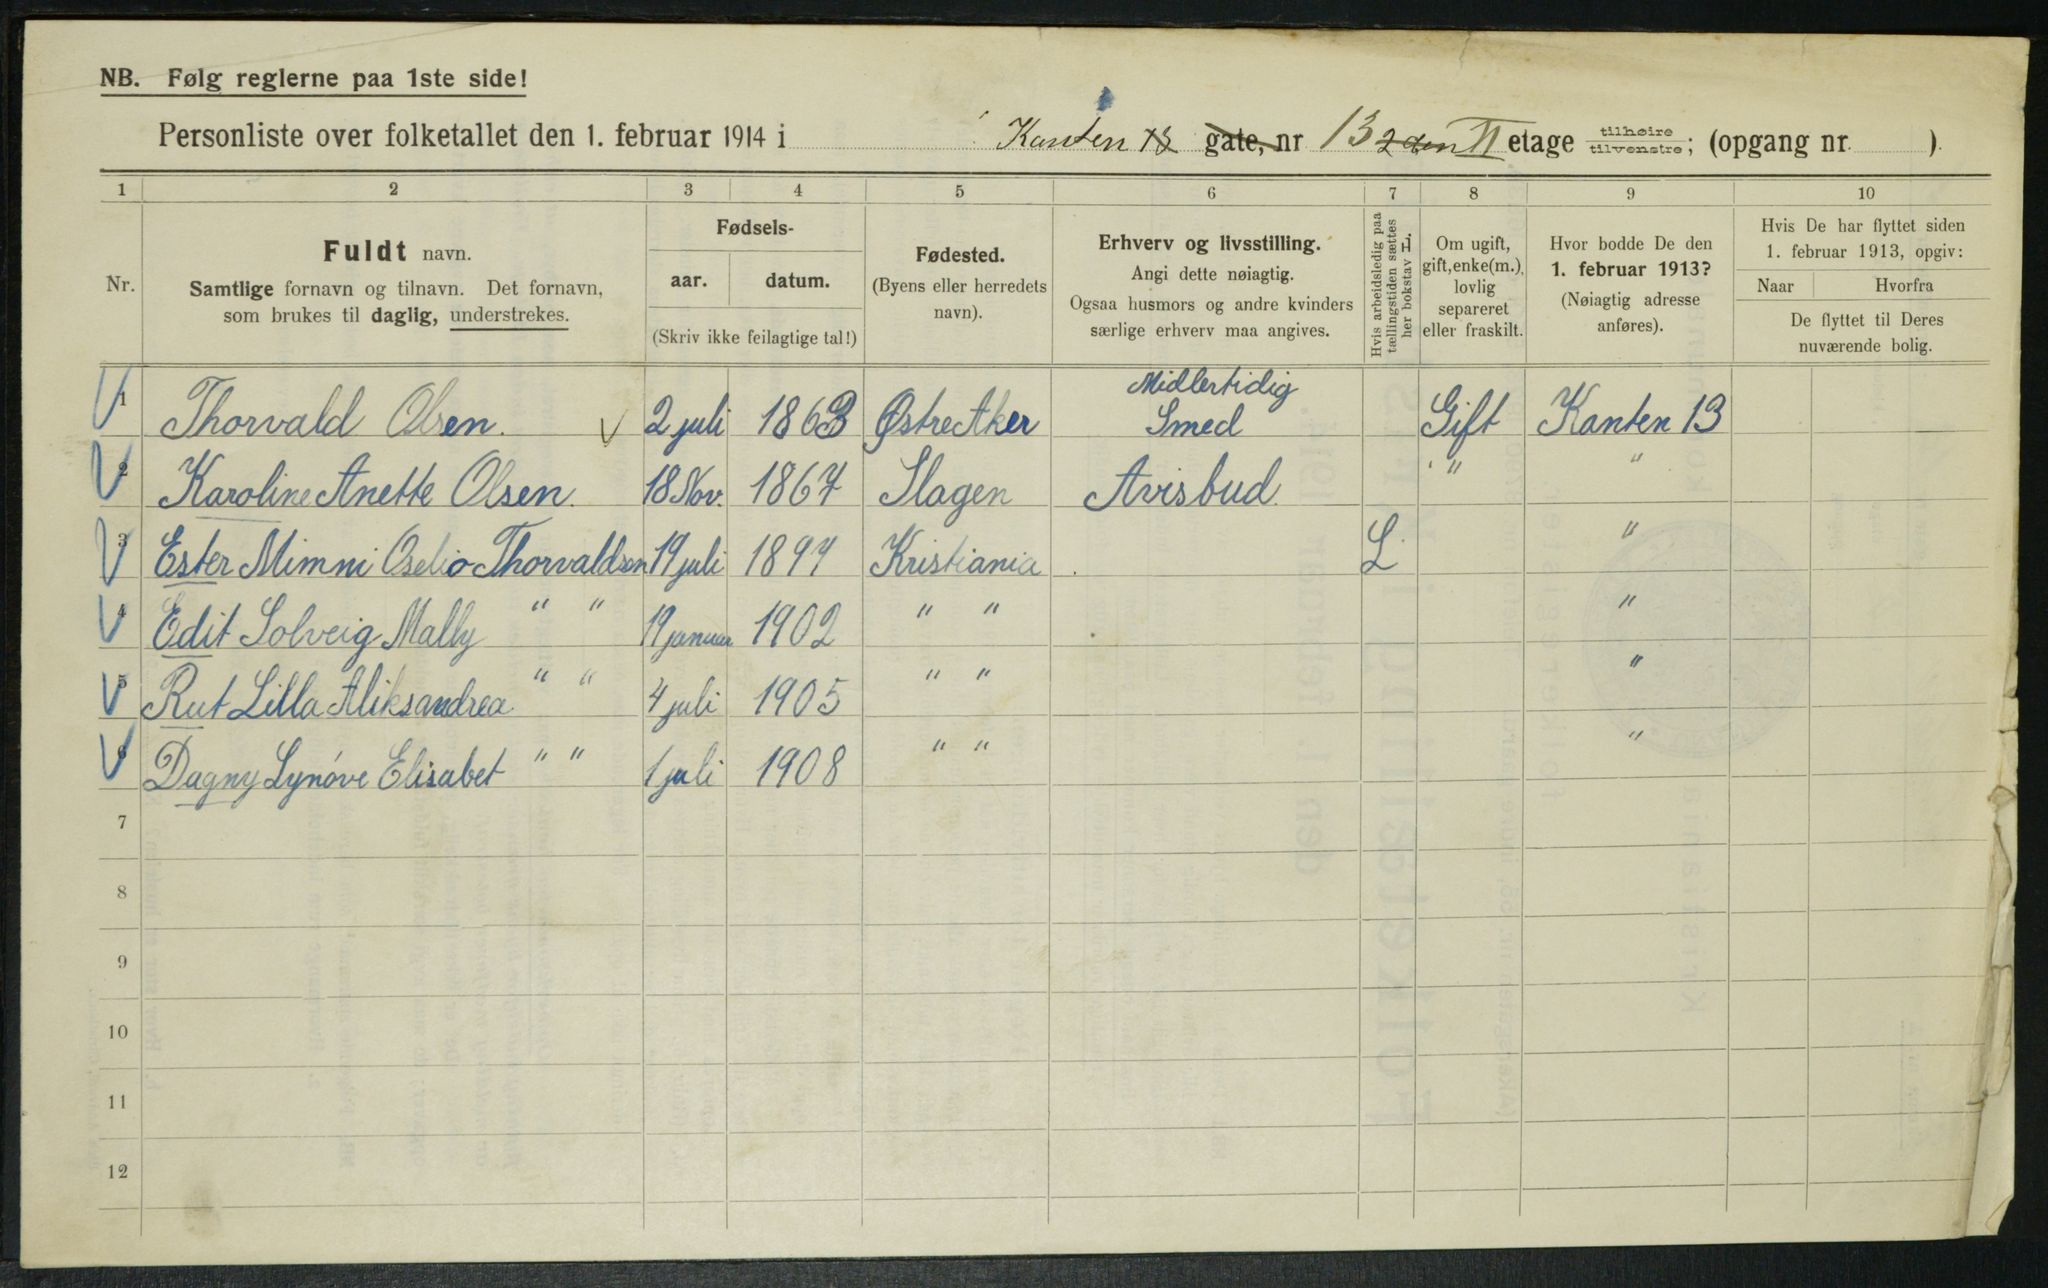 NB. Følg reglerne paa 1ste side!
Personliste over folketallet den 1. februar 1914 i Kanten 13 gate, nr 13 2den II etage tilhøire tilvenstre; (opgang nr. ).
1 2 3 4 5 6 7 8 9 10
Nr.
Fuldt navn.
Samtlige fornavn og tilnavn. Det fornavn,
som brukes til daglig, understrekes.
Fødsels-
aar. datum.
(Skriv ikke feilagtige tal!)
Fødested.
(Byens eller herredets
navn).
Erhverv og livsstilling.
Angi dette nøiagtig.
Ogsaa husmors og andre kvinders
særlige erhverv maa angives.
Hvis arbeidsledig paa
tællingstiden sættes
her bokstav L.
Om ugift,
gift, enke(m.),
lovlig
separeret
eller fraskilt.
Hvor bodde De den
1. februar 1913?
(Nøiagtig adresse
anføres).
Hvis De har flyttet siden
1. februar 1913, opgiv:
Naar Hvorfra
De flyttet til Deres
nuværende bolig.
1 Thorvald Olsen. 2 juli 1863 Østre Aker Midlertidig Smed Gift Kanten 13
2 Karoline Anette Olsen. 18 Nov. 1867 Slagen Avisbud. " "
3 Ester Mimmi Oselio Thorvaldsen 19 juli 1897 Kristiania L. "
4 Edit Solveig Mally " " 19 januar 1902 " " "
5 Rut Lilla Aliksandrea " " 4 juli 1905 " " "
6 Dagny Synóve Elisabet " " 1 juli 1908 " " "
7
8
9
10
11
12